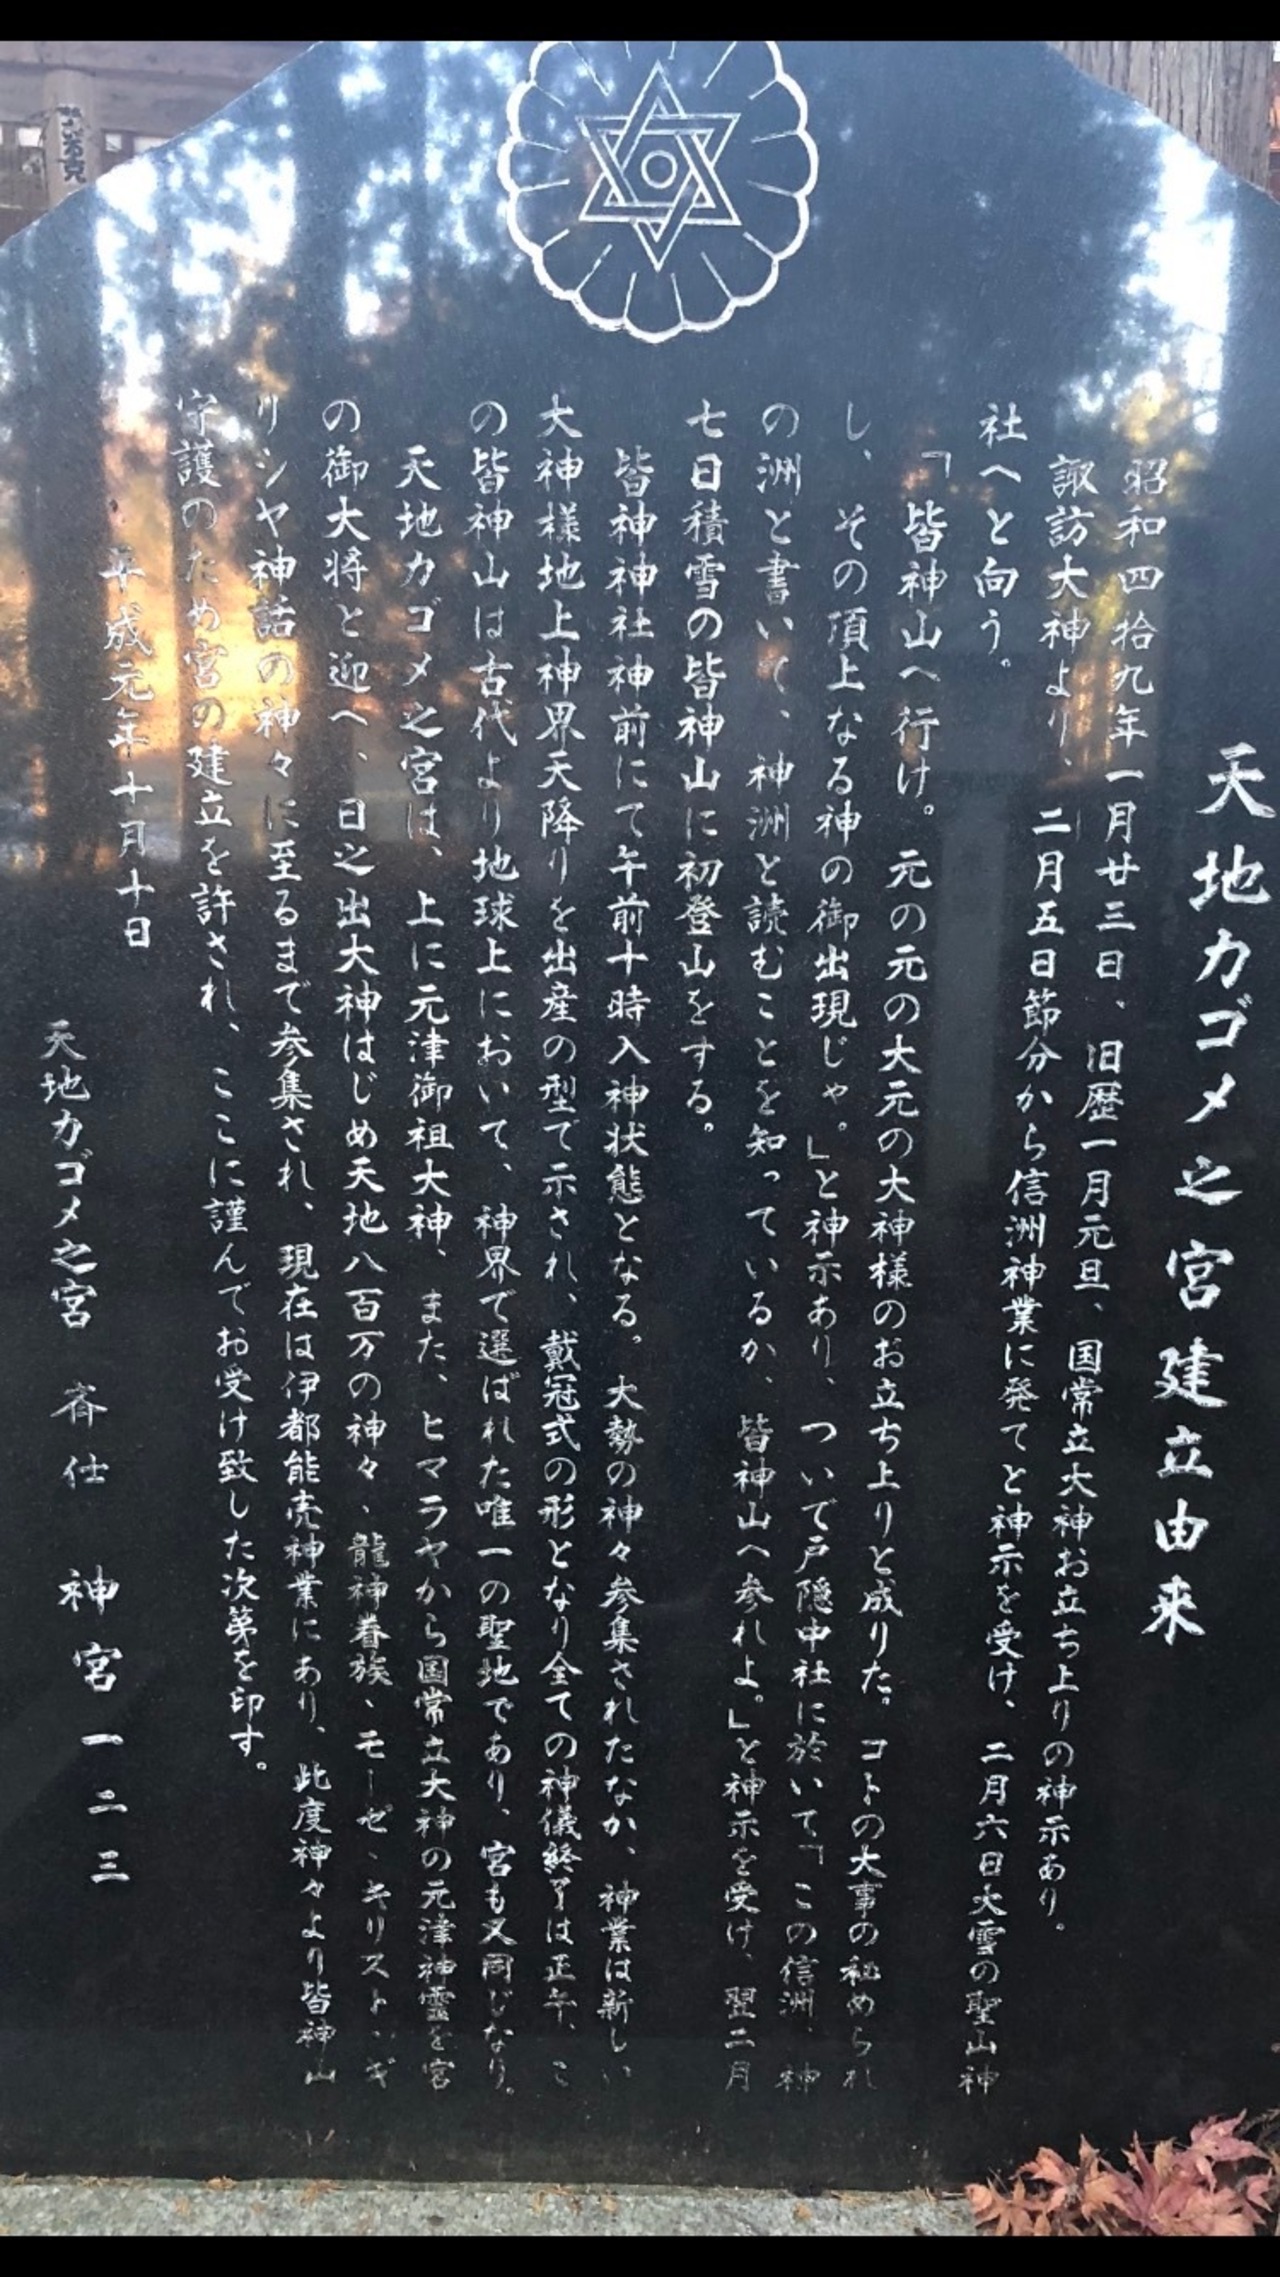 天地カゴメ之宮建立由来
昭和四拾九年一月廿三日、旧歴一月元旦、国常立大神お立ち上りの神示あり。
諏訪大神より、二月五日節分から信洲神業に発てと神示を受け、二月六日大雪の聖山神
社へと向う。
「皆神山へ行け。元の元の大元の大神様のお立ち上りと成りた。コトの大事の秘められ
し、その頂上なる神の御出現じゃ。」と神示あり、ついで戸隠中社に於いて「この信洲、神
の洲と書いて、神洲と読むことを知っているか、皆神山へ参れよ。」と神示を受け、翌二月
七日積雪の皆神山に初登山をする。
皆神神社神前にて午前十時入神状態となる。大勢の神々参集されたなか、神業は新しい
大神様地上神界天降りを出産の型で示され、戴冠式の形となり全ての神儀終了は正午、こ
の皆神山は古代より地球上において、神界で選ばれた唯一の聖地であり、宮も又同じなり。
天地カゴメ之宮は、上に元津御祖大神、また、ヒマラヤから国常立大神の元津神霊を宮
の御大将と迎へ、日之出大神はじめ天地八百万の神々、龍神眷族、モーゼ、キリスト、ギ
リシヤ神話の神々に至るまで参集され、現在は伊都能売神業にあり、此度神々より皆神山
守護のため宮の建立を許され、ここに謹んでお受け致した次第を印す。
平成元年十月十日
天地カゴメ之宮 斉仕 神宮一二三